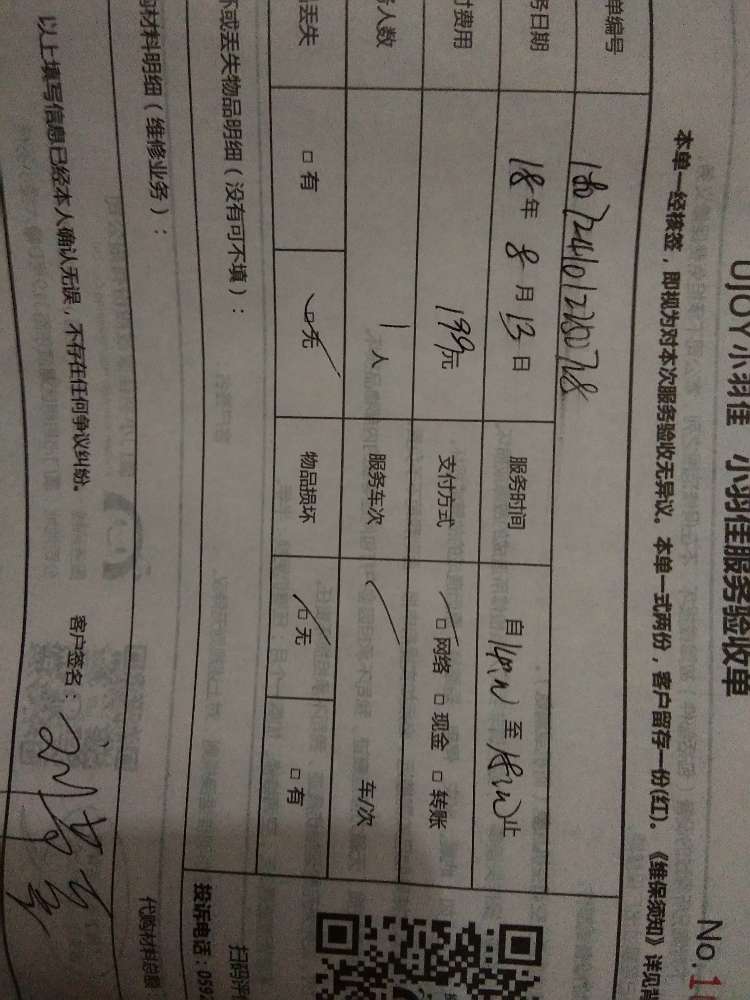 UjOY小羽佳 小羽佳服务验收单
No.1
本单一经核签，即视为对本次服务验收无异议。本单一式两份，客户留存一份(红)。《维保须知》详见背
单编号
务日期 18年8月13日 服务时间 自 至 止
付费用 199元 支付方式 □网络 □现金 □转账
务人数 1人 服务车次 车/次
品丢失 □有 □无 物品损坏 □无 □有
坏或丢失物品明细（没有可不填）：
扫码评
投诉电话：059
购材料明细（维修业务）：
代购材料总额
以上填写信息已经本人确认无误，不存在任何争议纠纷。 客户签名：